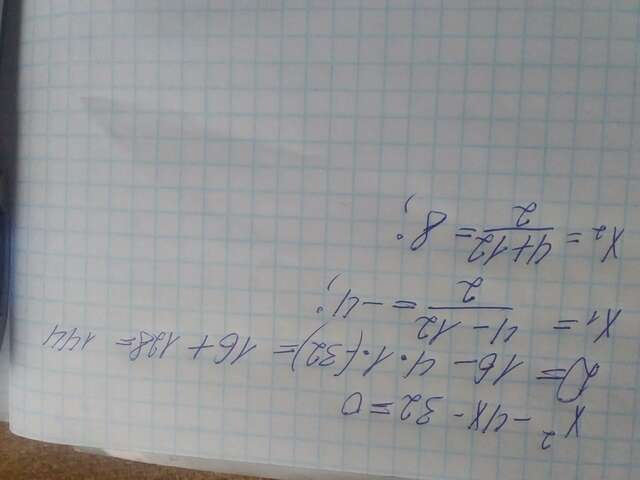 x² - 4x - 32 = 0
D = 16 - 4 · 1 · (-32) = 16 + 128 = 144
x₁ = (4 - 12)/2 = -4;
x₂ = (4 + 12)/2 = 8;